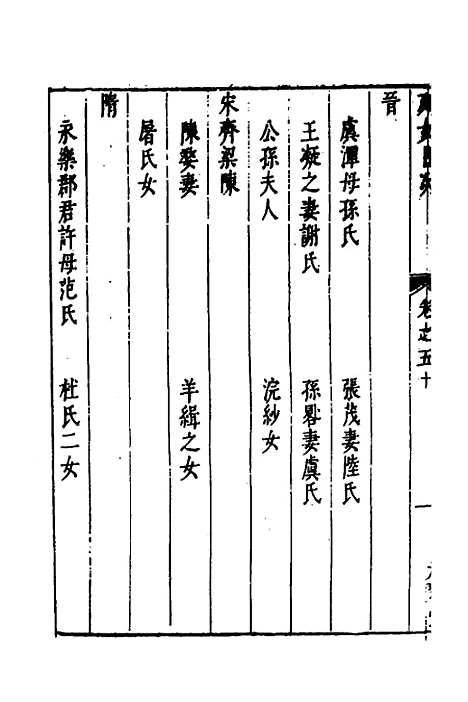 卷之五十
一
晉
虞潭母孫氏 張茂妻陸氏
王凝之妻謝氏 孫畧妻虞氏
公孫夫人 浣紗女
宋齊梁陳
陳婺妻 羊緝之女
屠氏女
隋
永樂郡君許母范氏 杜氏二女